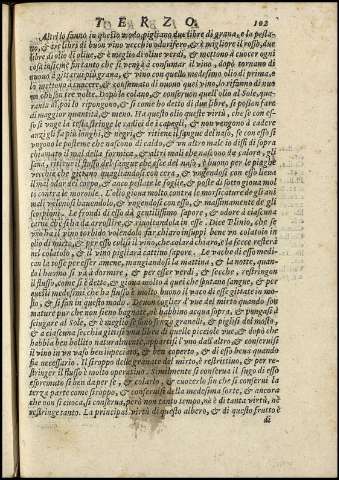 TERZO. 102
Altri lo fanno in questo modo, pigliano due libre di grana, e la pesta-
no, & tre libre di buon vino vecchio odorifero, & è migliore il rosso, due
libre di olio di olive, & è meglio di olive verdi, & mettono à cuocer ogni
cosa insieme fin tanto che si venga à consumar il vino, dopò tornano di
nuovo à gittarui più grana, & vino con quello medesimo olio di prima, e
lo mettono à cuocere, & consumato di nuouo quel vino, lo rifanno di nuo
vo sino à tre volte. Dopò colano, & conservan quell' olio al Sole, qua-
ranta dì, poi lo ripongono, & si come ho detto di due libre, si posson fare
di maggiore quantità, & meno. Ha questo olio queste virtù, che se con es-
so si vnge la testa, stringe le radice de i capegli, & non vengono à cadere
anzi gli fà più longhi, & negri, & ritiene il sangue del naso, se con esso si
vngono le posteme che nascono di caldo, & vn altro male in dissi di sopra
chiamato il mal della formica, & altri mali che nascono da calore, gli
sana, ristringe il flusso del sangue che esce del naso, è buono per le piaghe
vecchie che gittano quagliandosi con cera, & vngendosi con esso lieva
il mal odor del corpo, & cocco pestate le foglie, & poste di sotto giova mol
to contra le moroide. L'olio giova molto contra le morsicature de gli ani
mali velenosi bevendolo, & vngendosi con esso, & massimamente de gli
scorpioni. Le frondi di esso dà gentilissimo sapore, & odore à ciascuna
carne che si habbia arrostire, & cuocendola in esse. Dice Plinio, che se
il vino ha torbido volendolo far chiaro infuppi bene vn colatoio in
olio di mirto, & per esso coli il vino, che colarà chiaro, e la fecce resterà
nel colatoio, & il vino pigliarà cattivo sapore. Le vache di esso medi-
can la tosse per esser amene, mangiandosi la mattina, & la notte, quan-
do l' huomo si và à dormire, & per esser verdi, & secche, restringon
il flusso, come si è detto, & giova molto à quei che sputano sangue, & per
questi medesimi che ha flusso è molto buono il vaco di esse gittate in mo-
sto, & si fan in questo modo. Denon coglier d'vue del mirto quando son
mature pur che non sieno bagnate, nè habbino acqua sopra, & pongasi à
sciugare al Sole, & è meglio se sono senza granelli, & piglisi del mosto,
& à ciascuna secchia gitti vna libra di quelle piccole vue, & dopò che
habbia ben bollito naturalmente, apparti si l'vno dall' altro, & conservisi
il vino in vn vaso ben impeciato, & ben coperto, & di esso bena quando
fia necessario. Il siroppo delle granate del mirto è restrittivo, & per re-
stringer il flusso è molto operativo. Similmente si conserva il sugo di esso
espremuto sì ben da per se, & colarlo, & cuocerlo sin che si consumi la
terza parte come siroppo, & conserasi della medesima sorte, & ancora
che non si cuoca, si conserva, però non tanto tempo, nè è di tanta virtù, nè
restringe tanto. La principal virtù di questo albero, & di questo frutto è
di